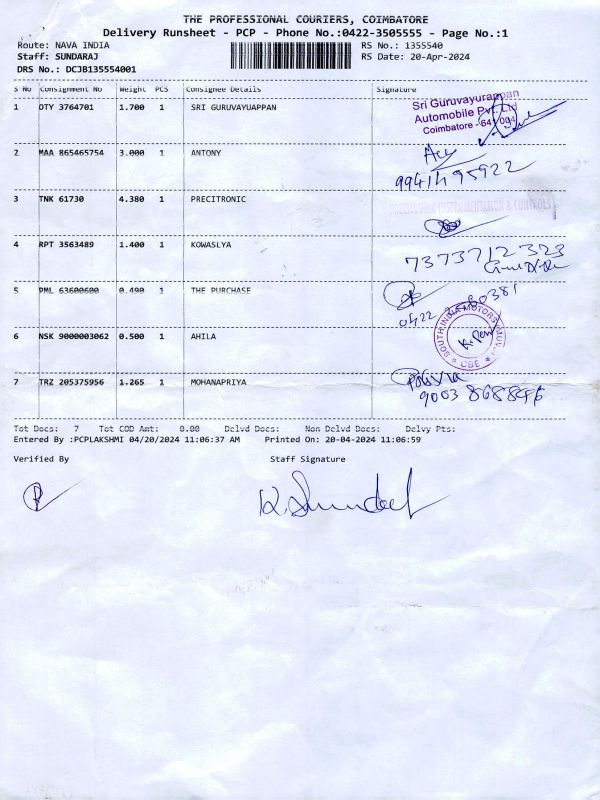 THE PROFESSIONAL COURIERS, COIMBATORE
Delivery Runsheet - PCP - Phone No.:0422-3505555 - Page No.:1
Route: NAVA INDIA RS No.: 1355540
Staff: SUNDARAJ RS Date: 20-Apr-2024
DRS No.: DCJB135554001
S No Consignment No Weight PCS Consignee Details Signature
1 OTY 3764701 1.700 1 SRI GURUVAYUAPPAN
Sri Guruvayurappan
Automobile Pvt. Ltd
Coimbatore - 641 004
2 MAA 865465754 3.000 1 ANTONY
9941495922
3 TNK 61730 4.380 1 PRECITRONIC
INSTRUMENTATION & CONTROLS
4 RPT 3563489 1.400 1 KOWASLYA
7373712323
5 PML 63600600 0.490 1 THE PURCHASE
0422
6 NSK 9000003062 0.500 1 AHILA
SOUTH INDIA MOTORS
CBE
7 TRZ 205375956 1.265 1 MOHANAPRIYA
9003 868846
Tot Docs: 7 Tot COD Amt: 0.00 Delvd Docs: Non Delvd Docs: Delvy Pts:
Entered By :PCPLAKSHMI 04/20/2024 11:06:37 AM Printed On: 20-04-2024 11:06:59
Verified By Staff Signature